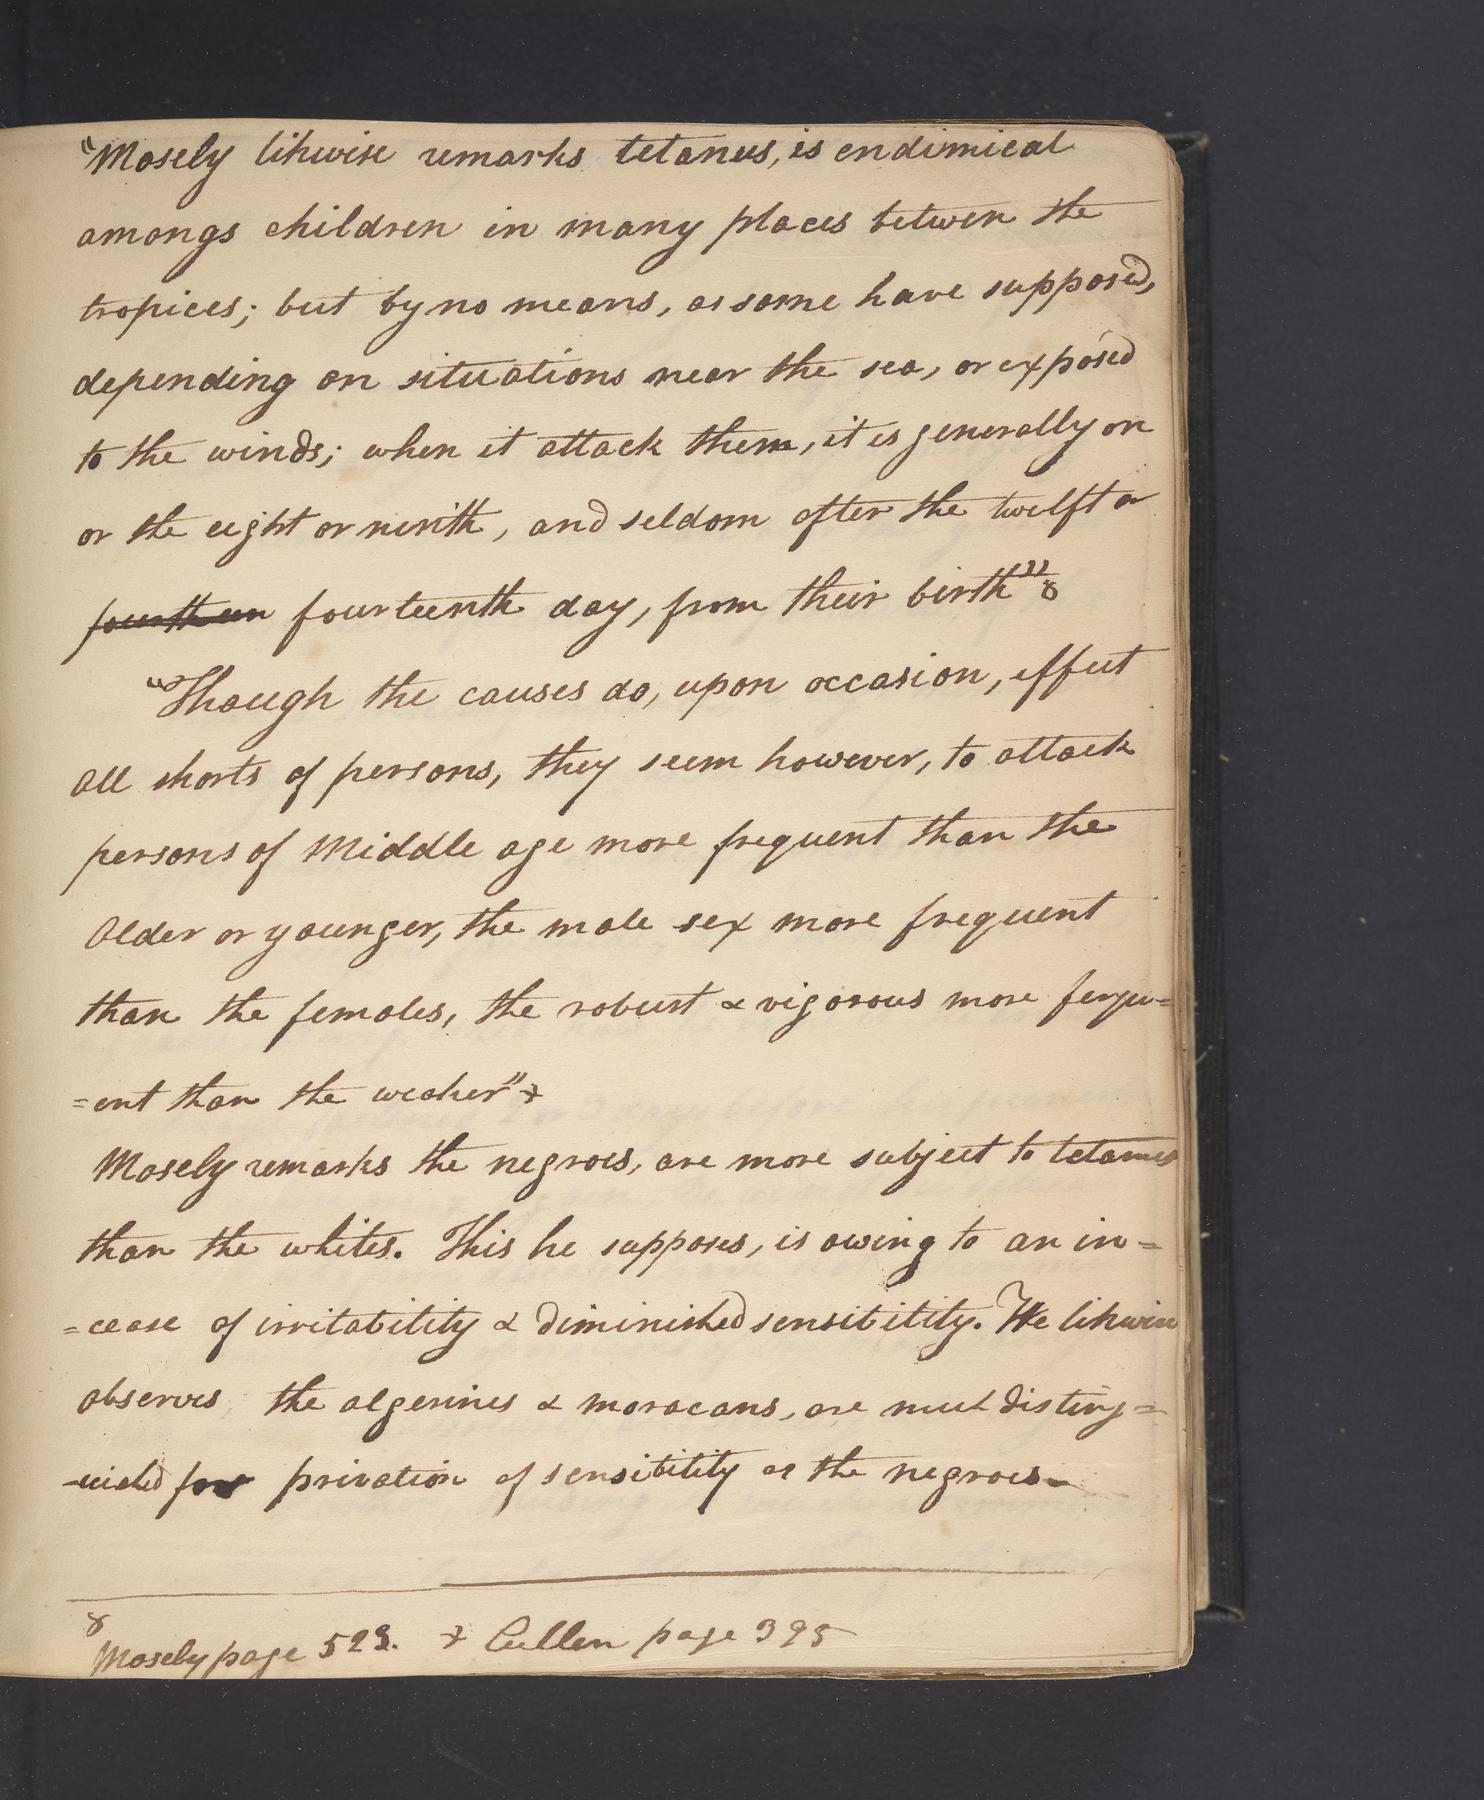 "Mosely likwise remarks tetanus, is endimical
amongs children in many places betwen the
tropices; but by no means, as some have supposed,
depending on situations near the sea, or exposed
to the winds; when it attack them, it is generally on
or the eight or ninth, and seldom after the twelft or
fourteen fourteenth day, from their birth" 8
"Though the causes do, upon occasion, effect
All shorts of persons, they seem however, to attack
persons of Middle age more frequent than the
Older or younger, the male sex more frequent
than the females, the robust & vigorous more ferqu=
=ent than the weaker" +
Mosely remarks the negroes, are more subject to tetanus
than the whites. This he supposes, is owing to an in=
=cease of irritability & diminished sensibility. He likwise
observes the algerines & moracans, are much disting=
=uished for privation of sensibility as the negroes
8 Mosely page 523. + Cullen page 395